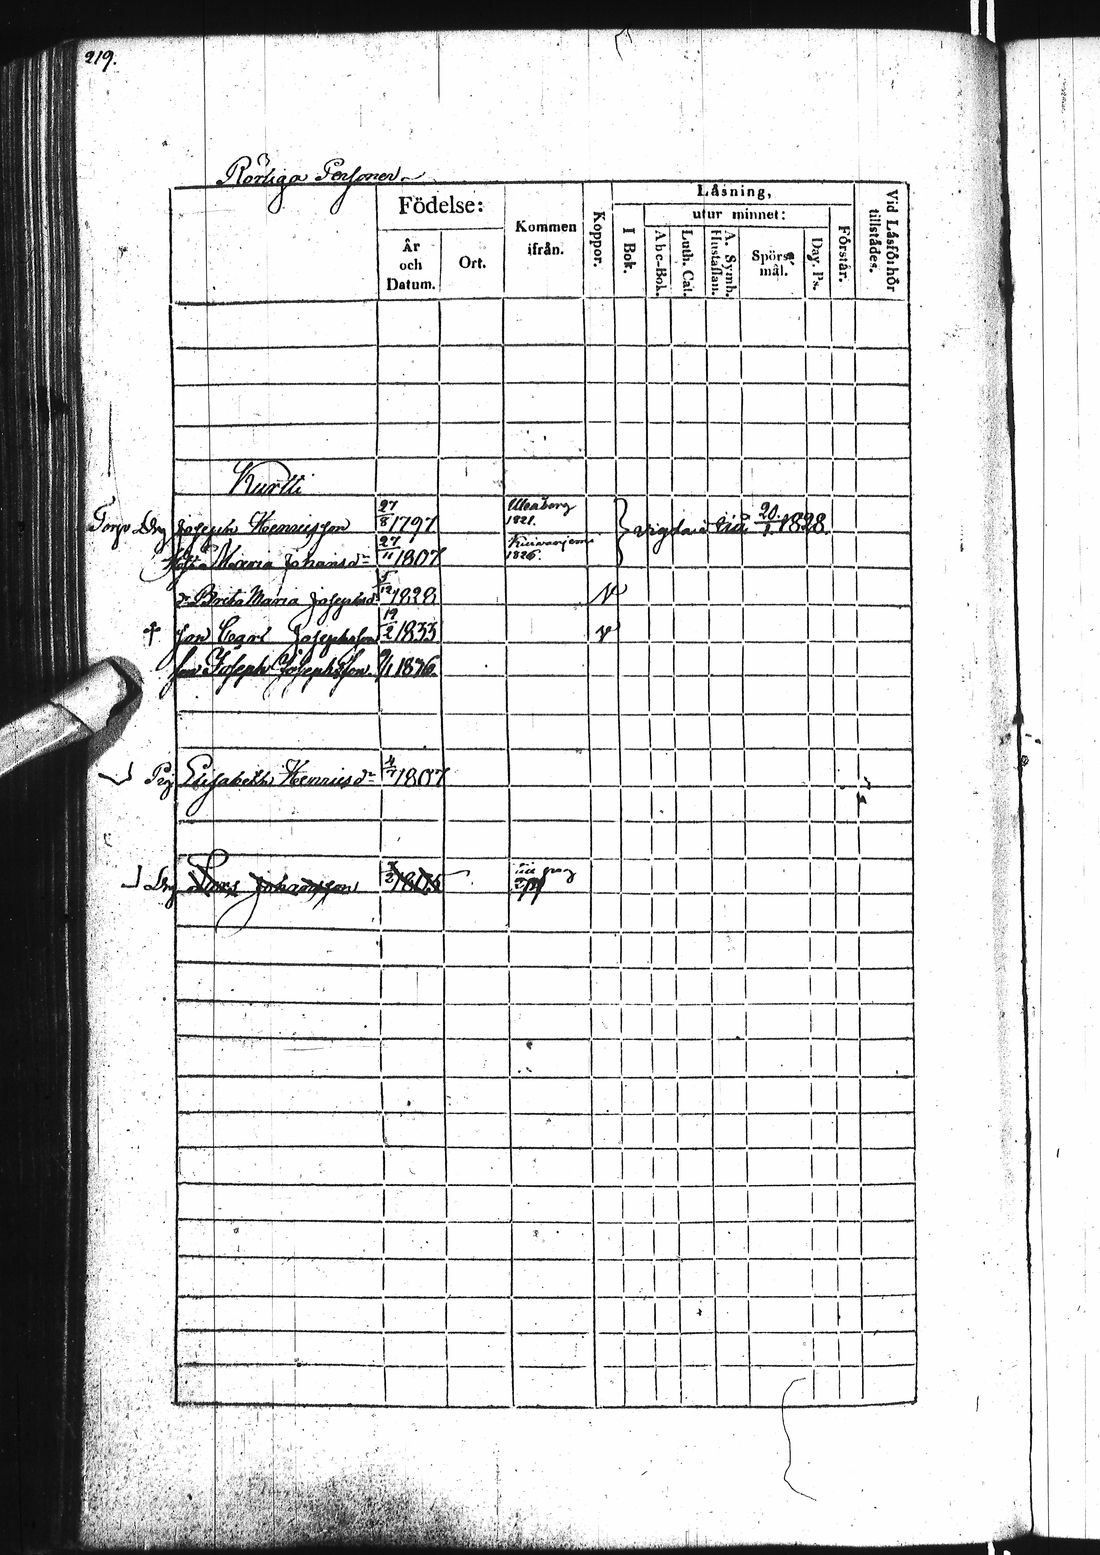 219.
Rörliga Personer
Födelse:
År och Datum.
Ort.
Kommen ifrån.
Koppor.
Läsning,
I Bok.
utur minnet:
Abc-Bok.
Luth. Cat.
A. Symb. Hustaflan.
Spörsmål.
Dav. Ps.
Förstår.
Vid Läsförhör tillstädes.
Kurtti
Torp. Drg Joseph Henriksson 27/8 1797 Uleåborg 1821.
vigda 20/1 1828
Maria Johansdr 27/11 1807 1826.
dr Brita Maria Josephsd 5/12 1828 v
† Son Carl Josephsson 19/2 1833 v
Son Joseph Josephsson 9/11 1836.
Pig Elisabeth Henricsdr 4/7 1807
Drg Lars Johansson